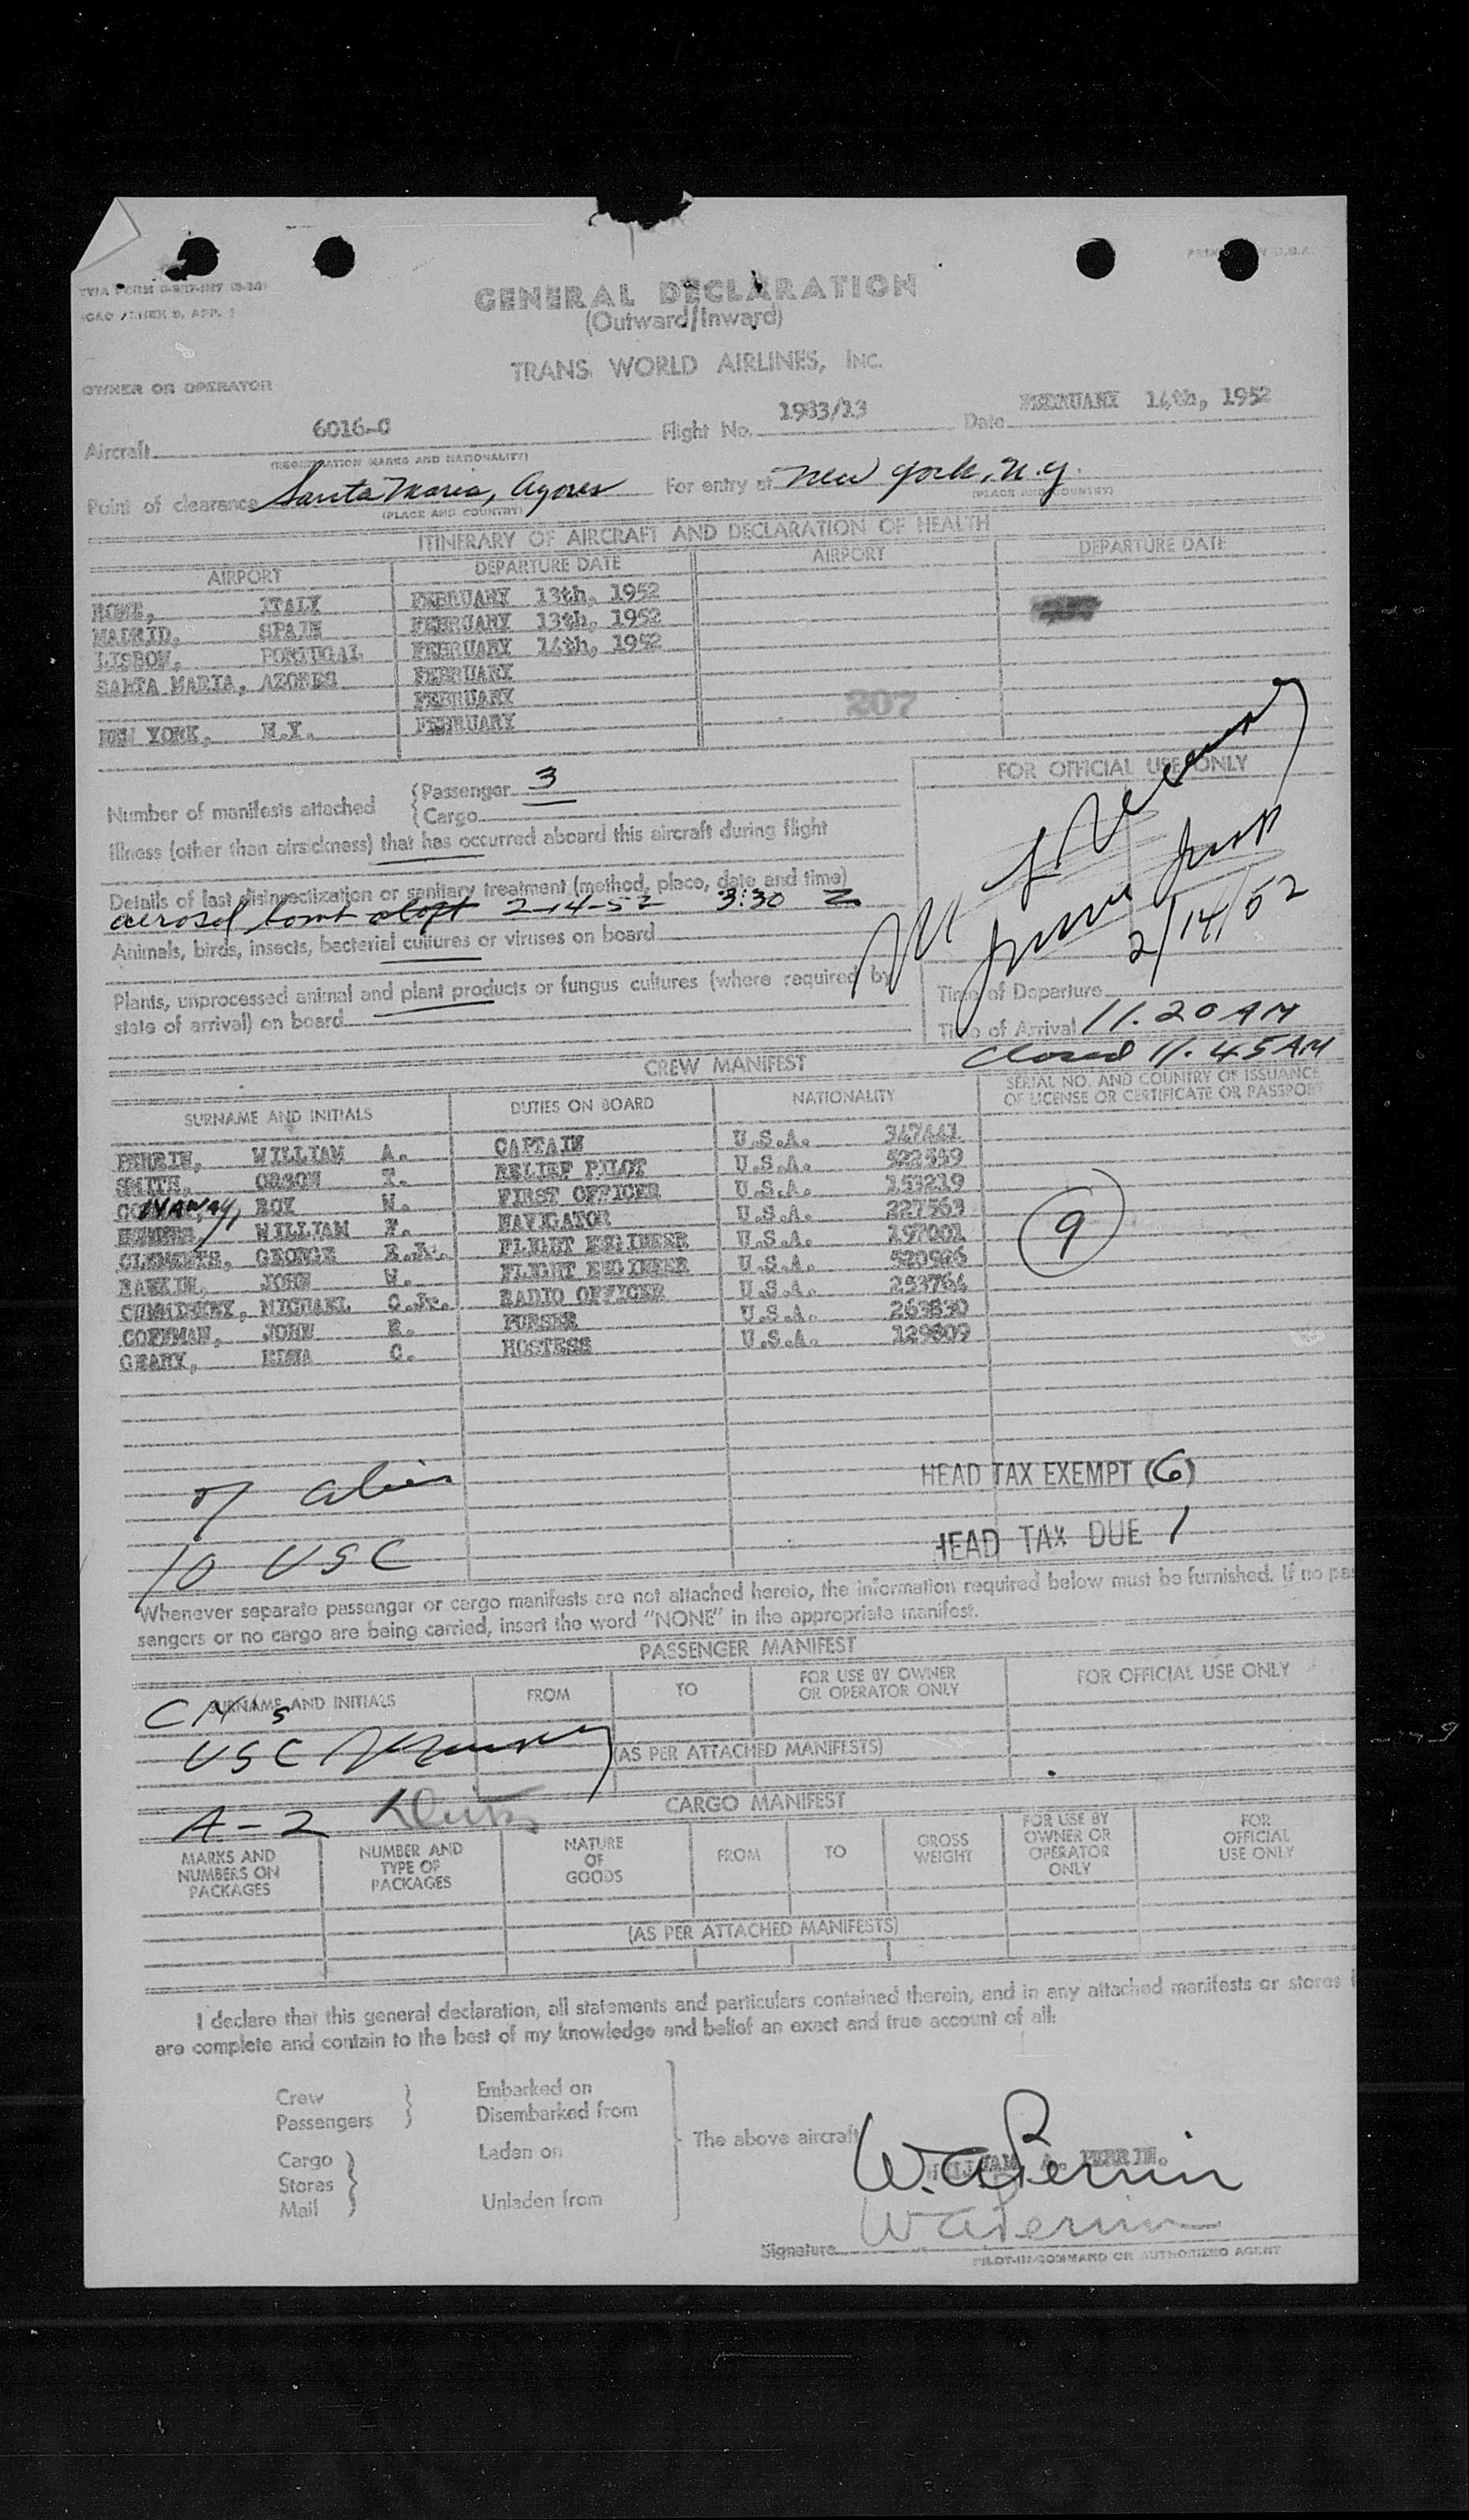 GENERAL DECLARATION
(Outward/Inward)
TRANS WORLD AIRLINES, INC.
OWNER OR OPERATOR
Aircraft 6016-C Flight No. 1933/13 Date FEBRUARY 14th, 1952
(REGISTRATION MARKS AND NATIONALITY)
Point of clearance Santa Maria, Azores For entry at New York, N.Y.
(PLACE AND COUNTRY) (PLACE AND COUNTRY)
ITINERARY OF AIRCRAFT AND DECLARATION OF HEALTH
AIRPORT DEPARTURE DATE AIRPORT DEPARTURE DATE
ROME, ITALY FEBRUARY 13th, 1952
MADRID, SPAIN FEBRUARY 13th, 1952
LISBON, PORTUGAL FEBRUARY 14th, 1952
SANTA MARIA, AZORES FEBRUARY
FEBRUARY 207
NEW YORK, N.Y. FEBRUARY
FOR OFFICIAL USE ONLY
Number of manifests attached {Passenger 3
{Cargo
Illness (other than airsickness) that has occurred aboard this aircraft during flight
Details of last disinsectization or sanitary treatment (method, place, date and time)
aerosol bomb aloft 2-14-52 3:30 Z
2/14/52
Animals, birds, insects, bacterial cultures or viruses on board
Plants, unprocessed animal and plant products or fungus cultures (where required by
state of arrival) on board
Time of Departure
Time of Arrival 11.20 AM
Closed 11.45 AM
CREW MANIFEST
SURNAME AND INITIALS DUTIES ON BOARD NATIONALITY SERIAL NO. AND COUNTRY OF ISSUANCE
OF LICENSE OR CERTIFICATE OR PASSPORT
PERRIN, WILLIAM A. CAPTAIN U.S.A. 347441
SMITH, ORSON T. RELIEF PILOT U.S.A. 522559
CONAWAY, ROY W. FIRST OFFICER U.S.A. 153219
WILLIAM F. NAVIGATOR U.S.A. 227563
CLEMENTS, GEORGE E.Jr. FLIGHT ENGINEER U.S.A. 197001
RANKIN, JOHN W. FLIGHT ENGINEER U.S.A. 520926
MICHAEL C.Jr. RADIO OFFICER U.S.A. 253764
COFFMAN, JOHN E. PURSER U.S.A. 263830
GEARY, EDNA C. HOSTESS U.S.A. 129809
9
HEAD TAX EXEMPT (6)
HEAD TAX DUE 1
10 USC
Whenever separate passenger or cargo manifests are not attached hereto, the information required below must be furnished. If no pas
sengers or no cargo are being carried, insert the word "NONE" in the appropriate manifest.
PASSENGER MANIFEST
SURNAME AND INITIALS FROM TO FOR USE BY OWNER
OR OPERATOR ONLY FOR OFFICIAL USE ONLY
USC
(AS PER ATTACHED MANIFESTS)
A-2
CARGO MANIFEST
MARKS AND
NUMBERS ON
PACKAGES NUMBER AND
TYPE OF
PACKAGES NATURE
OF
GOODS FROM TO GROSS
WEIGHT FOR USE BY
OWNER OR
OPERATOR
ONLY FOR
OFFICIAL
USE ONLY
(AS PER ATTACHED MANIFESTS)
I declare that this general declaration, all statements and particulars contained therein, and in any attached manifests or stores
are complete and contain to the best of my knowledge and belief an exact and true account of all:
Crew
Passengers } Embarked on
Disembarked from
Cargo
Stores
Mail } Laden on
Unladen from
The above aircraft
WILLIAM A. PERRIN.
W. A. Perrin
W A Perrin
Signature
PILOT-IN-COMMAND OR AUTHORIZED AGENT